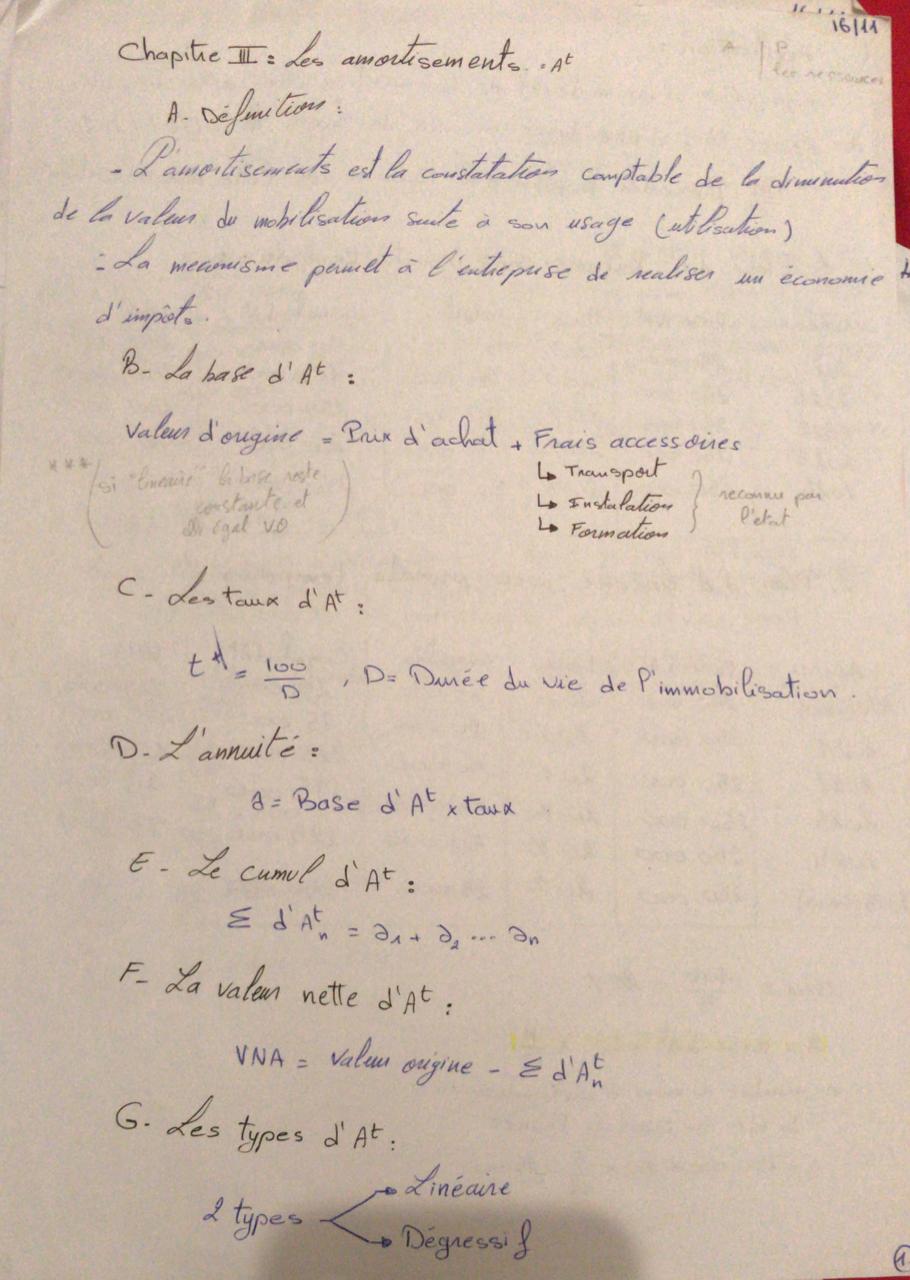 16/11
Chapitre III : Les amortisements. : At
A - Définition :
- L'amortisements est la constatation comptable de la diminution
de la valeur du mobilisation suite à son usage (utilisation)
- La mecanisme permet à l'entreprise de realiser un économie
d'impôts.
B - La base d'At :
Valeur d'origine = Prix d'achat + Frais accessoires
*** (si "lineaire" la base reste
constante et
égal V.O)
↳ Transport
↳ Instalation
↳ Formation
reconnu par
l'état
C - Les taux d'At :
t = 100/D , D = Durée du vie de l'immobilisation.
D - L'annuité :
a = Base d'At x taux
E - Le cumul d'At :
Σ d'Atn = a1 + a2 ... an
F - La valeur nette d'At :
VNA = Valeur origine - Σ d'Atn
G - Les types d'At :
2 types → Linéaire
→ Dégressif
1